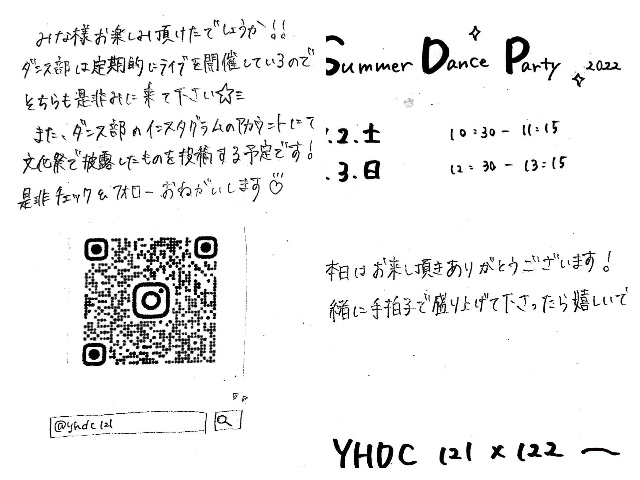 みな様お楽しみ頂けたでしょうか!!
ダンス部は定期的にライブを開催しているので
そちらも是非みに来て下さい☆ミ
また、ダンス部のインスタグラムのアカウントにて
文化祭で披露したものを投稿する予定です!
是非チェック&フォローおねがいします♡
@yhdc121
Summer Dance Party 2022
.2.土 10:30-11:15
.3.日 12:30-13:15
本日はお来し頂きありがとうございます!
緒に手拍子で盛り上げて下さったら嬉しいで
YHDC 121×122 ～